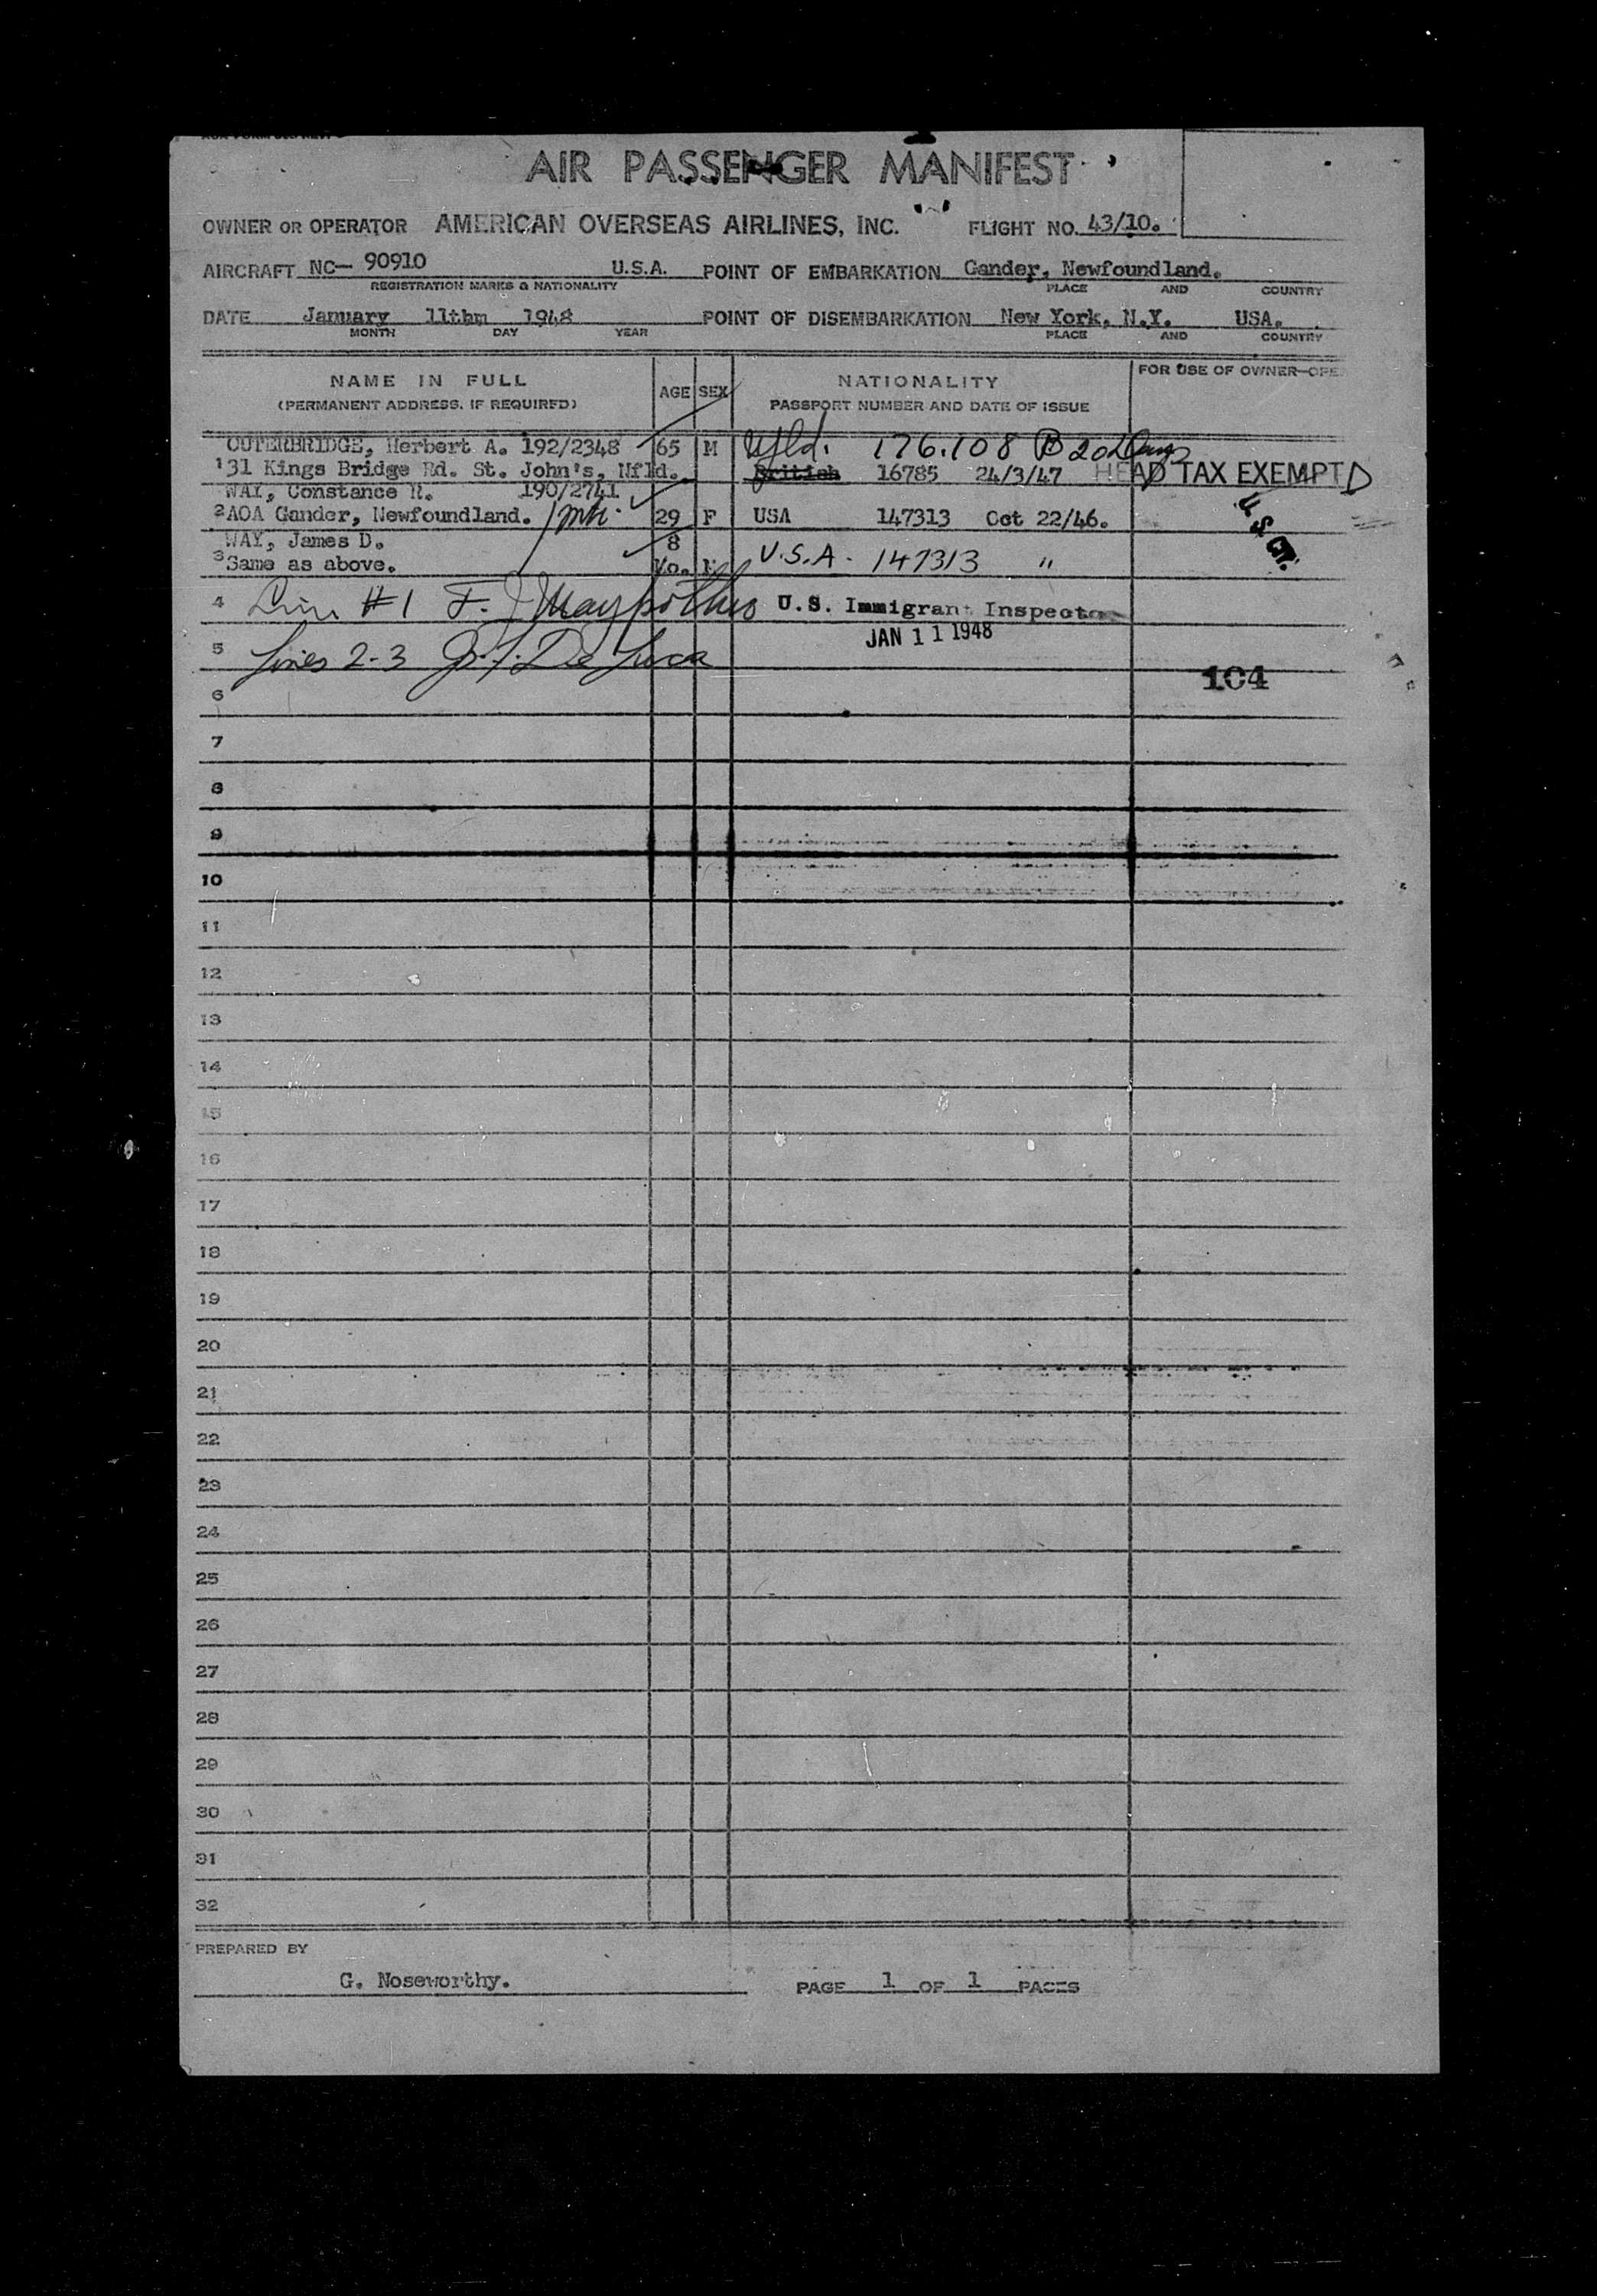 AIR PASSENGER MANIFEST
OWNER OR OPERATOR AMERICAN OVERSEAS AIRLINES, INC. FLIGHT NO. 43/10.
AIRCRAFT NC— 90910 U.S.A. POINT OF EMBARKATION Gander, Newfoundland.
REGISTRATION MARKS & NATIONALITY PLACE AND COUNTRY
DATE January 11thm 1948 POINT OF DISEMBARKATION New York, N.Y. USA.
MONTH DAY YEAR PLACE AND COUNTRY
NAME IN FULL AGE SEX NATIONALITY FOR USE OF OWNER—OPE
(PERMANENT ADDRESS, IF REQUIRED) PASSPORT NUMBER AND DATE OF ISSUE
OUTERBRIDGE, Herbert A. 192/2348 65 M Nfld. 176.108 B 20 Days
1 31 Kings Bridge Rd. St. John's, Nfld. British 16785 24/3/47 HEAD TAX EXEMPT D
WAY, Constance R. 190/2741
2 AOA Gander, Newfoundland. 29 F USA 147313 Oct 22/46. U.S. Cit.
WAY, James D. 8
3 Same as above. Mo. U.S.A. 147313 "
4 Line #1 F. J. U.S. Immigrant Inspector
JAN 11 1948
5 Lines 2-3 De Luca
104
6
7
8
9
10
11
12
13
14
15
16
17
18
19
20
21
22
23
24
25
26
27
28
29
30
31
32
PREPARED BY
G. Noseworthy.
PAGE 1 OF 1 PAGES